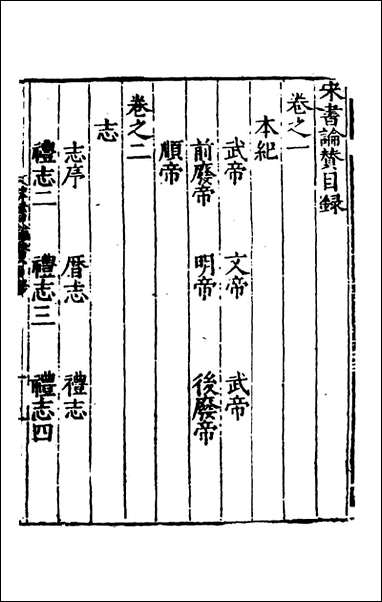 宋書論贊目録
卷之一
本紀
武帝 文帝 武帝
前廢帝 明帝 後廢帝
順帝
卷之二
志
志序 曆志 禮志
禮志二 禮志三 禮志四